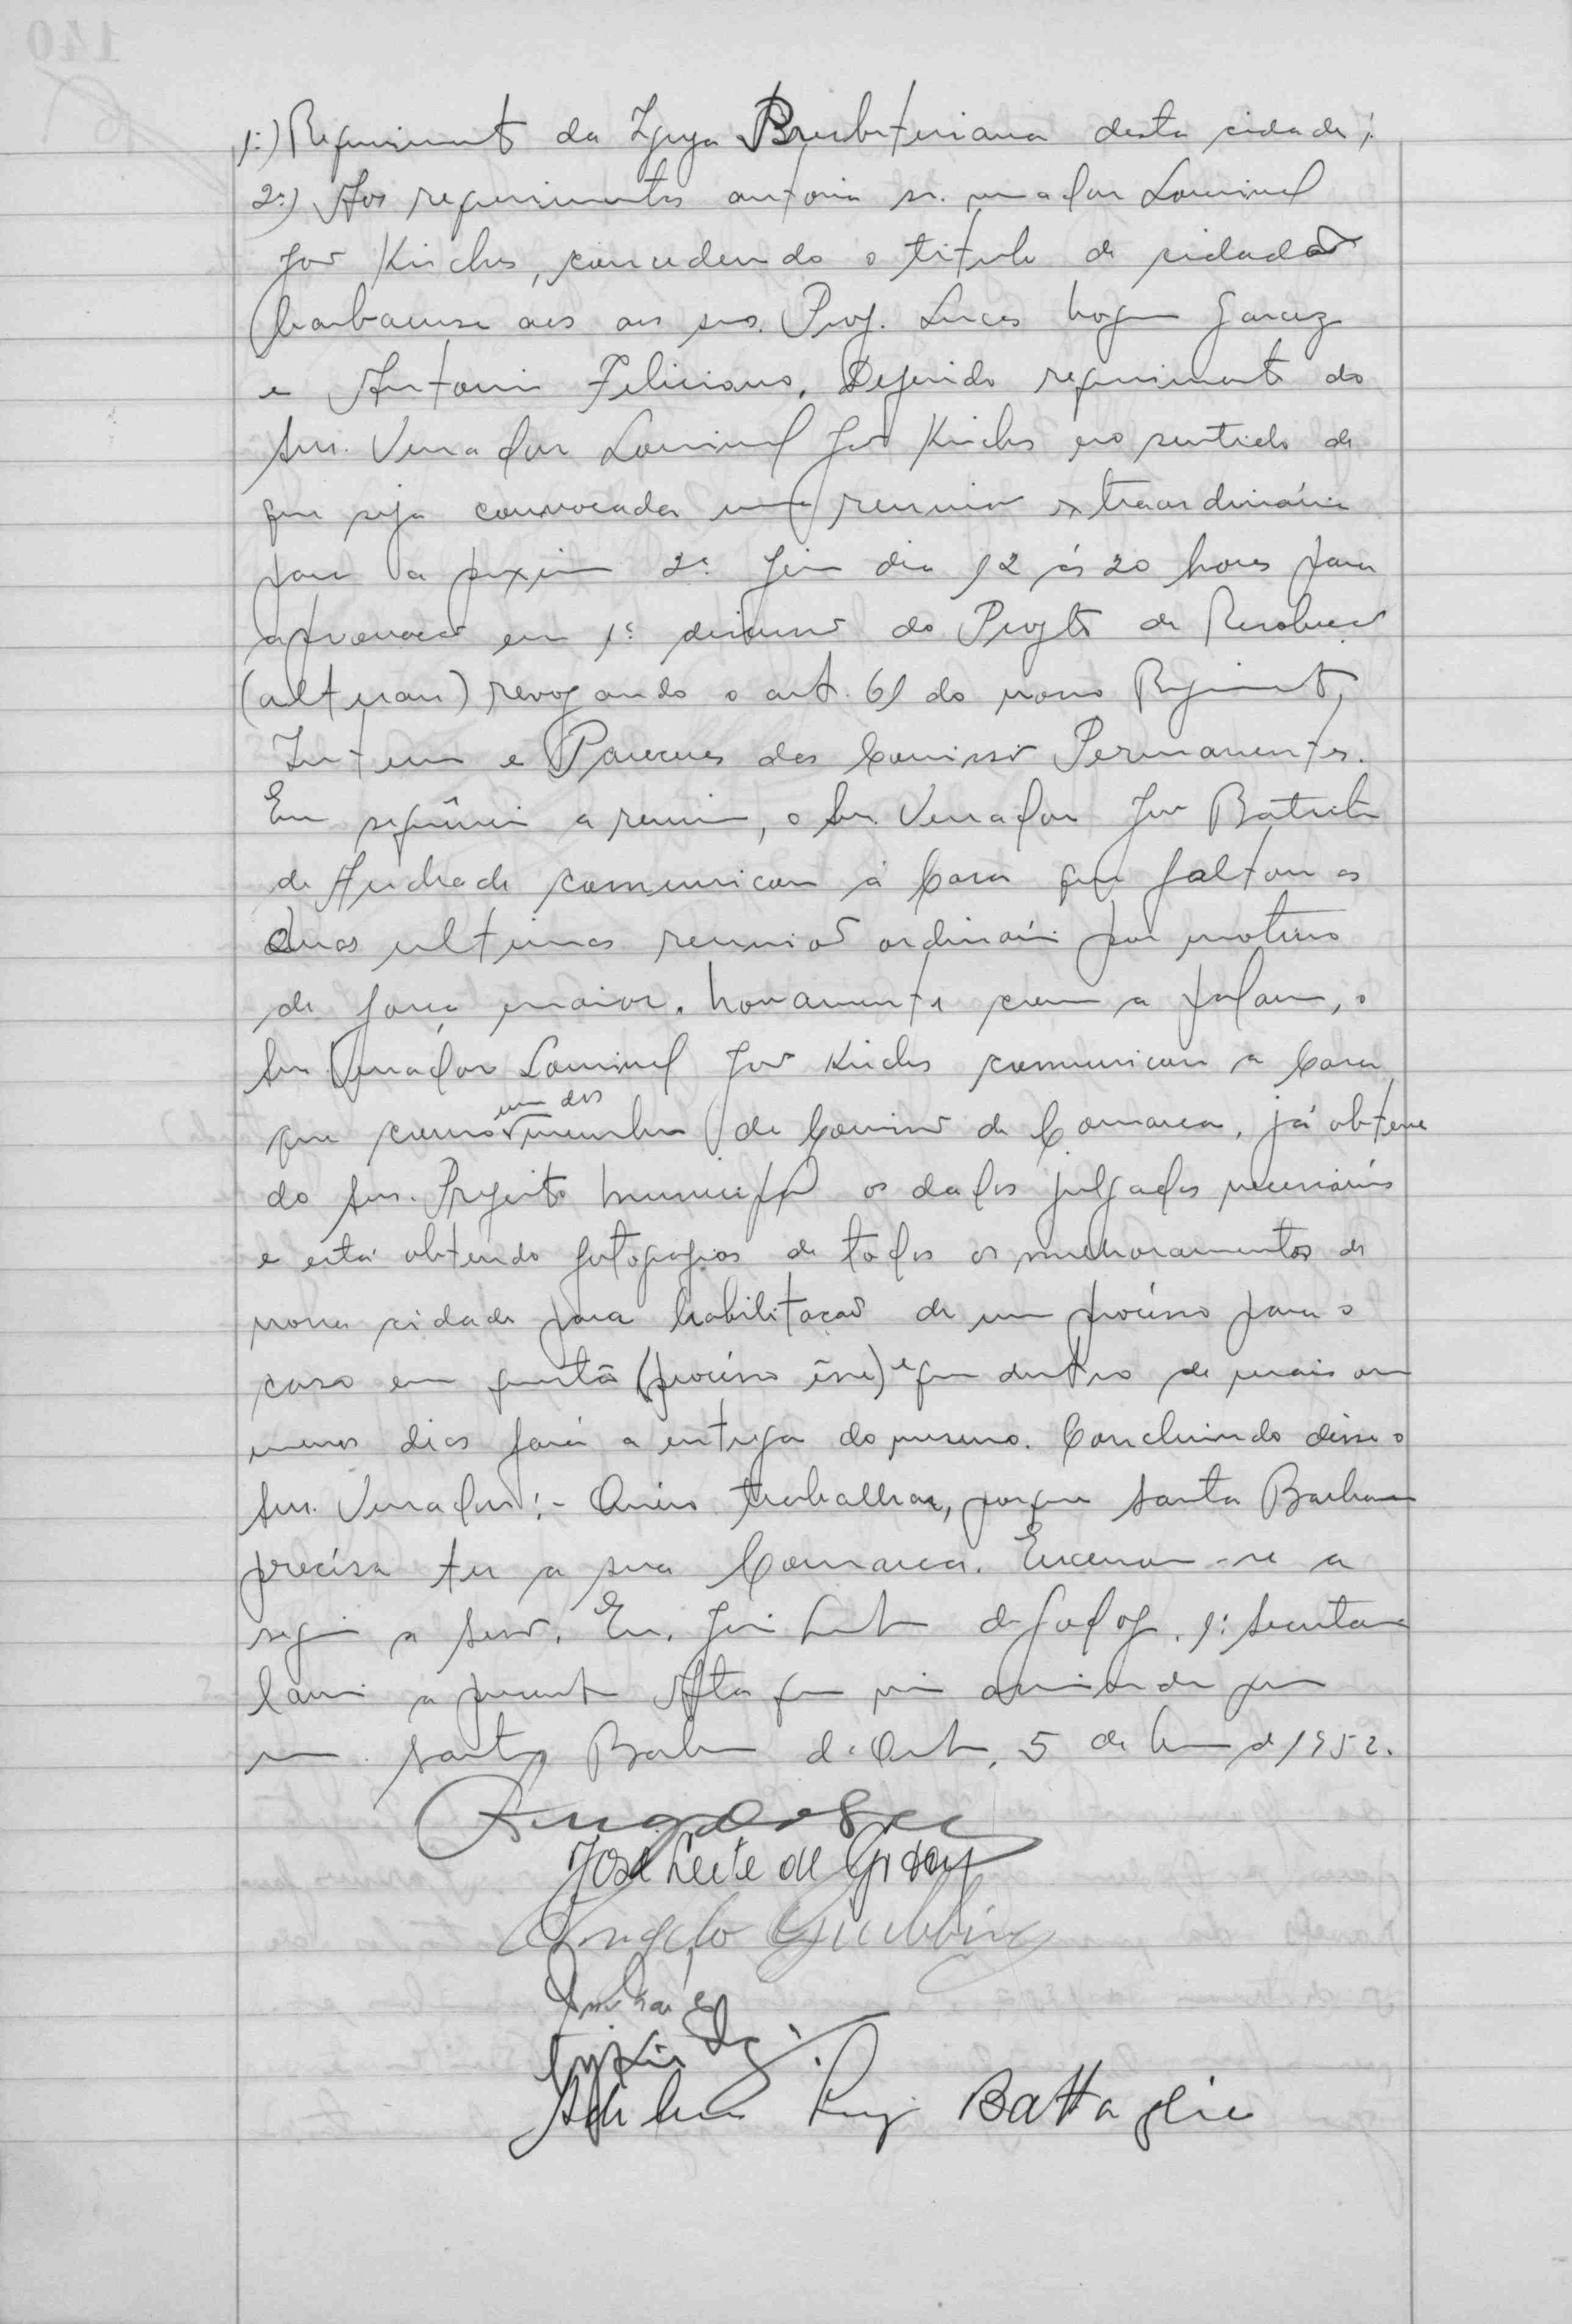 1º) Requerimento da Igreja Presbiteriana desta cidade;
2º) Aos requerimentos autoria sr. vereador Lourival
José Kirches, concedendo o titulo de cidadão
barbarense aos srs. Prof. Lucas Nogueira Garcez
e Antonio Feliciano. Deferido requerimento do
Snr. Vereador Lourival José Kirches no sentido de
que seja convocada uma reunião extraordinária
para a proxima 2ª feira dia 12 ás 20 horas para
aprovação em 1ª discussão do Projeto de Resolução
(alteração) revogando o art. 61 do nosso Regimento
Interno e Pareceres das Comissão Permanentes.
Em sequência a reunião, o Snr. Vereador José Batista
de Andrade comunicou á Casa que faltou as
duas ultimas reuniões ordinária por motivo
de força maior. Novamente com a palavra, o
Snr. Vereador Lourival José Kirches comunicou a Casa
que como um dos membro da Comissão de Comarca, já obteve
do Snr. Prefeito Municipal os dados julgados necessários
e está obtendo fotografias de todos os melhoramentos de
nossa cidade para habilitação de um procésso para o
caso em questão (procésso êsse) e que dentro de mais ou
menos dias fará a entrega do mesmo. Concluindo disse o
Snr. Vereador:- Quero trabalhar, porque Santa Barbara
precisa ter a sua Comarca. Encerrou-se a
seguir a Sessão. Eu, José Leite de Godoy, 1º Secretario
lavrei a presente Ata que vai assinada por
mim. Santa Barbara d'Oeste, 5 de de 1952.
José Leite de Godoy
Angelo Giubbina
Battaglia
140